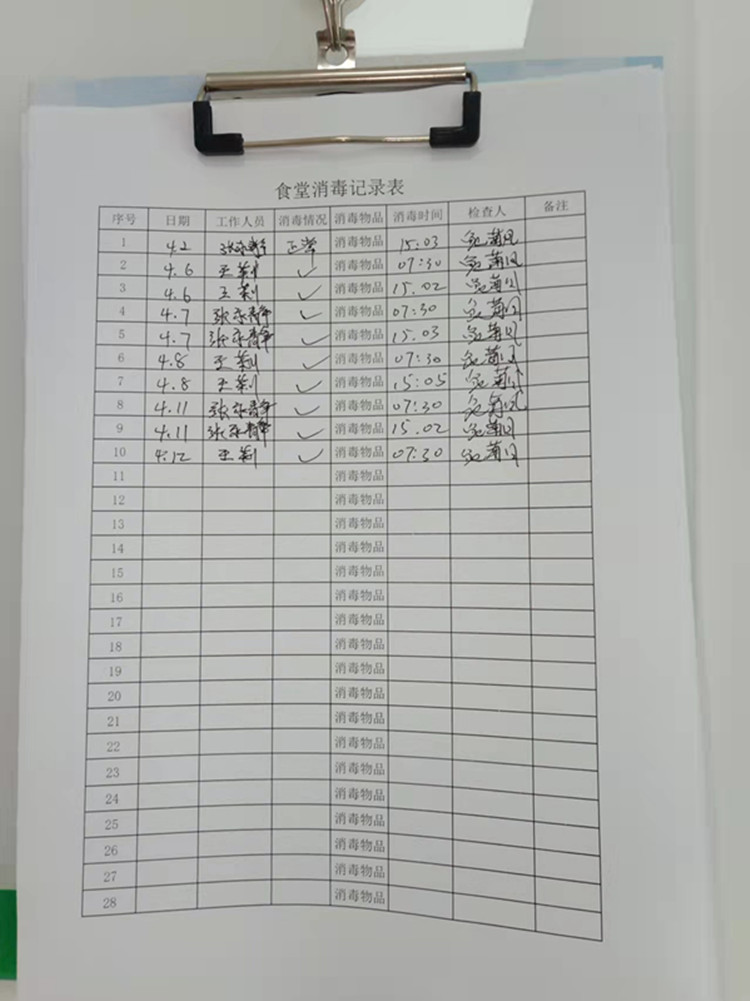 食堂消毒记录表
序号 日期 工作人员 消毒情况 消毒物品 消毒时间 检查人 备注
1 4.2 正常 消毒物品 15:03
2 4.6 王莉 ✓ 消毒物品 07:30
3 4.6 王莉 ✓ 消毒物品 15.02
4 4.7 张乐静 ✓ 消毒物品 07:30
5 4.7 张乐静 ✓ 消毒物品 15.03
6 4.8 王莉 ✓ 消毒物品 07:30
7 4.8 王莉 ✓ 消毒物品 15:05
8 4.11 张乐静 ✓ 消毒物品 07:30
9 4.11 张乐静 ✓ 消毒物品 15.02
10 4.12 王莉 ✓ 消毒物品 07:30
11 消毒物品
12 消毒物品
13 消毒物品
14 消毒物品
15 消毒物品
16 消毒物品
17 消毒物品
18 消毒物品
19 消毒物品
20 消毒物品
21 消毒物品
22 消毒物品
23 消毒物品
24 消毒物品
25 消毒物品
26 消毒物品
27 消毒物品
28 消毒物品